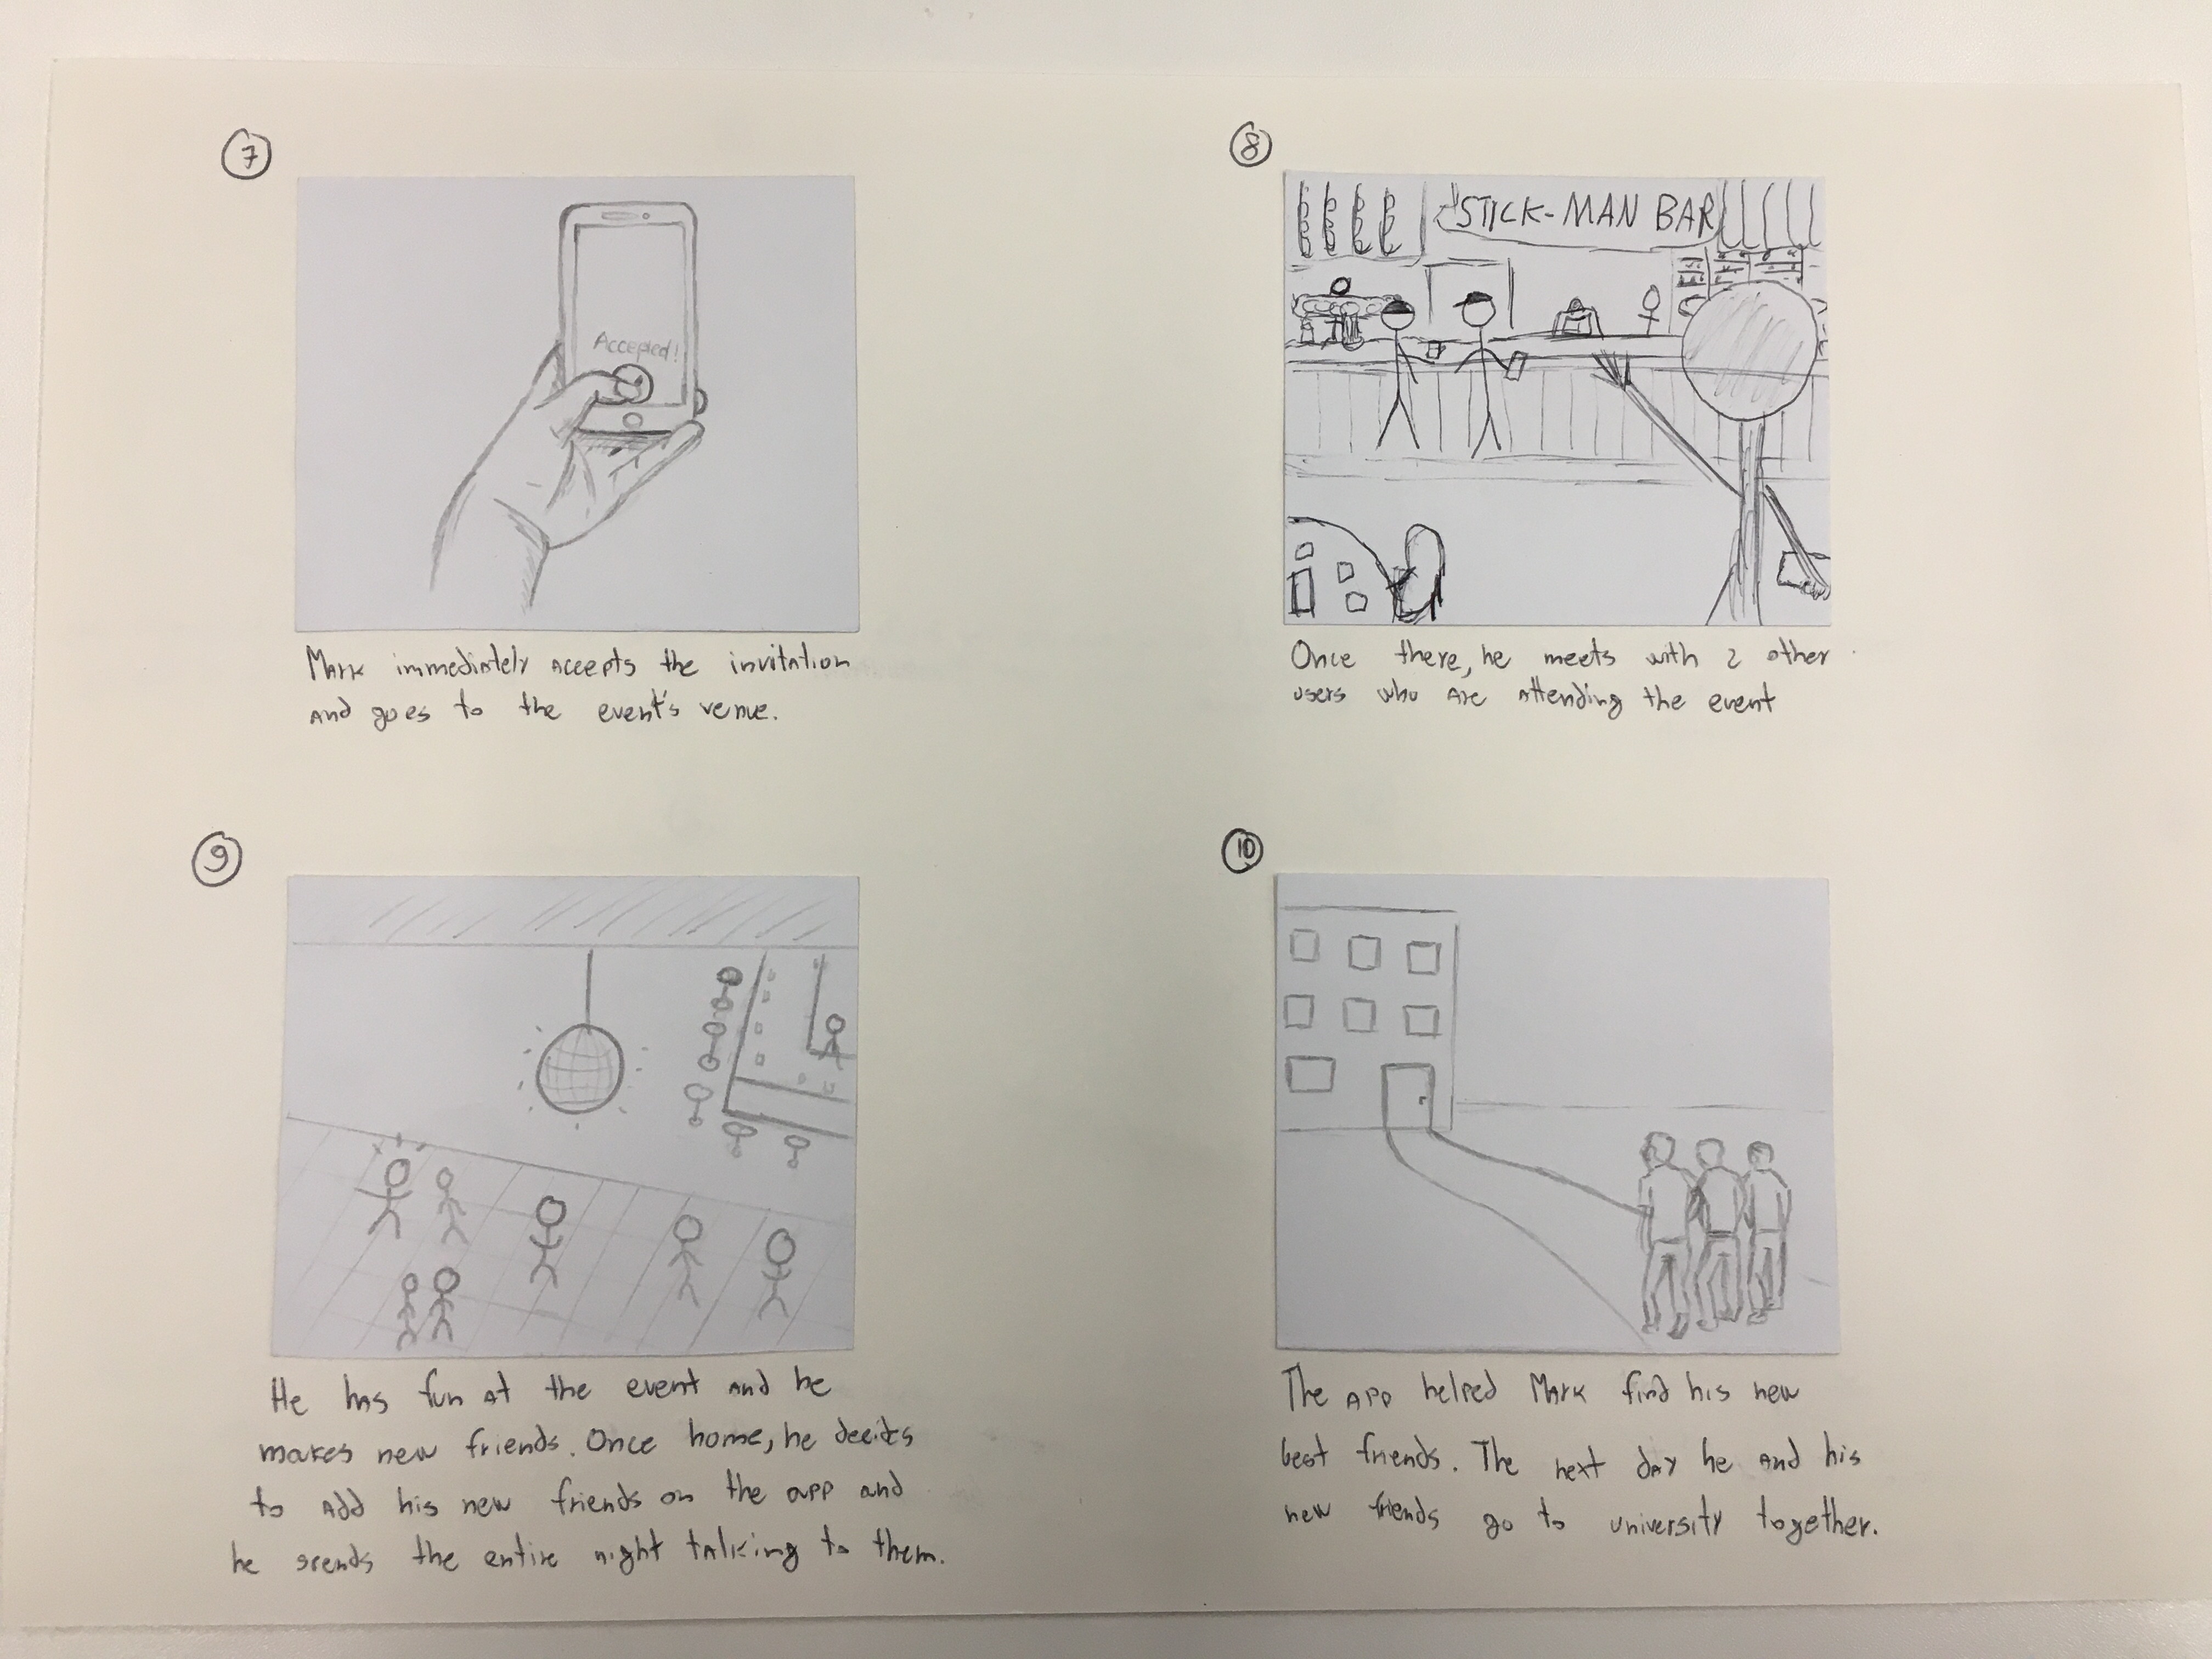 7
Accepted!
Mark immediately accepts the invitation
and goes to the event's venue.
8
STICK-MAN BAR
Once there, he meets with 2 other
users who are attending the event
9
He has fun at the event and he
makes new friends. Once home, he decides
to add his new friends on the app and
he spends the entire night talking to them.
10
The app helped Mark find his new
best friends. The next day he and his
new friends go to university together.